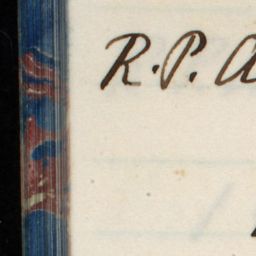 R. P. A